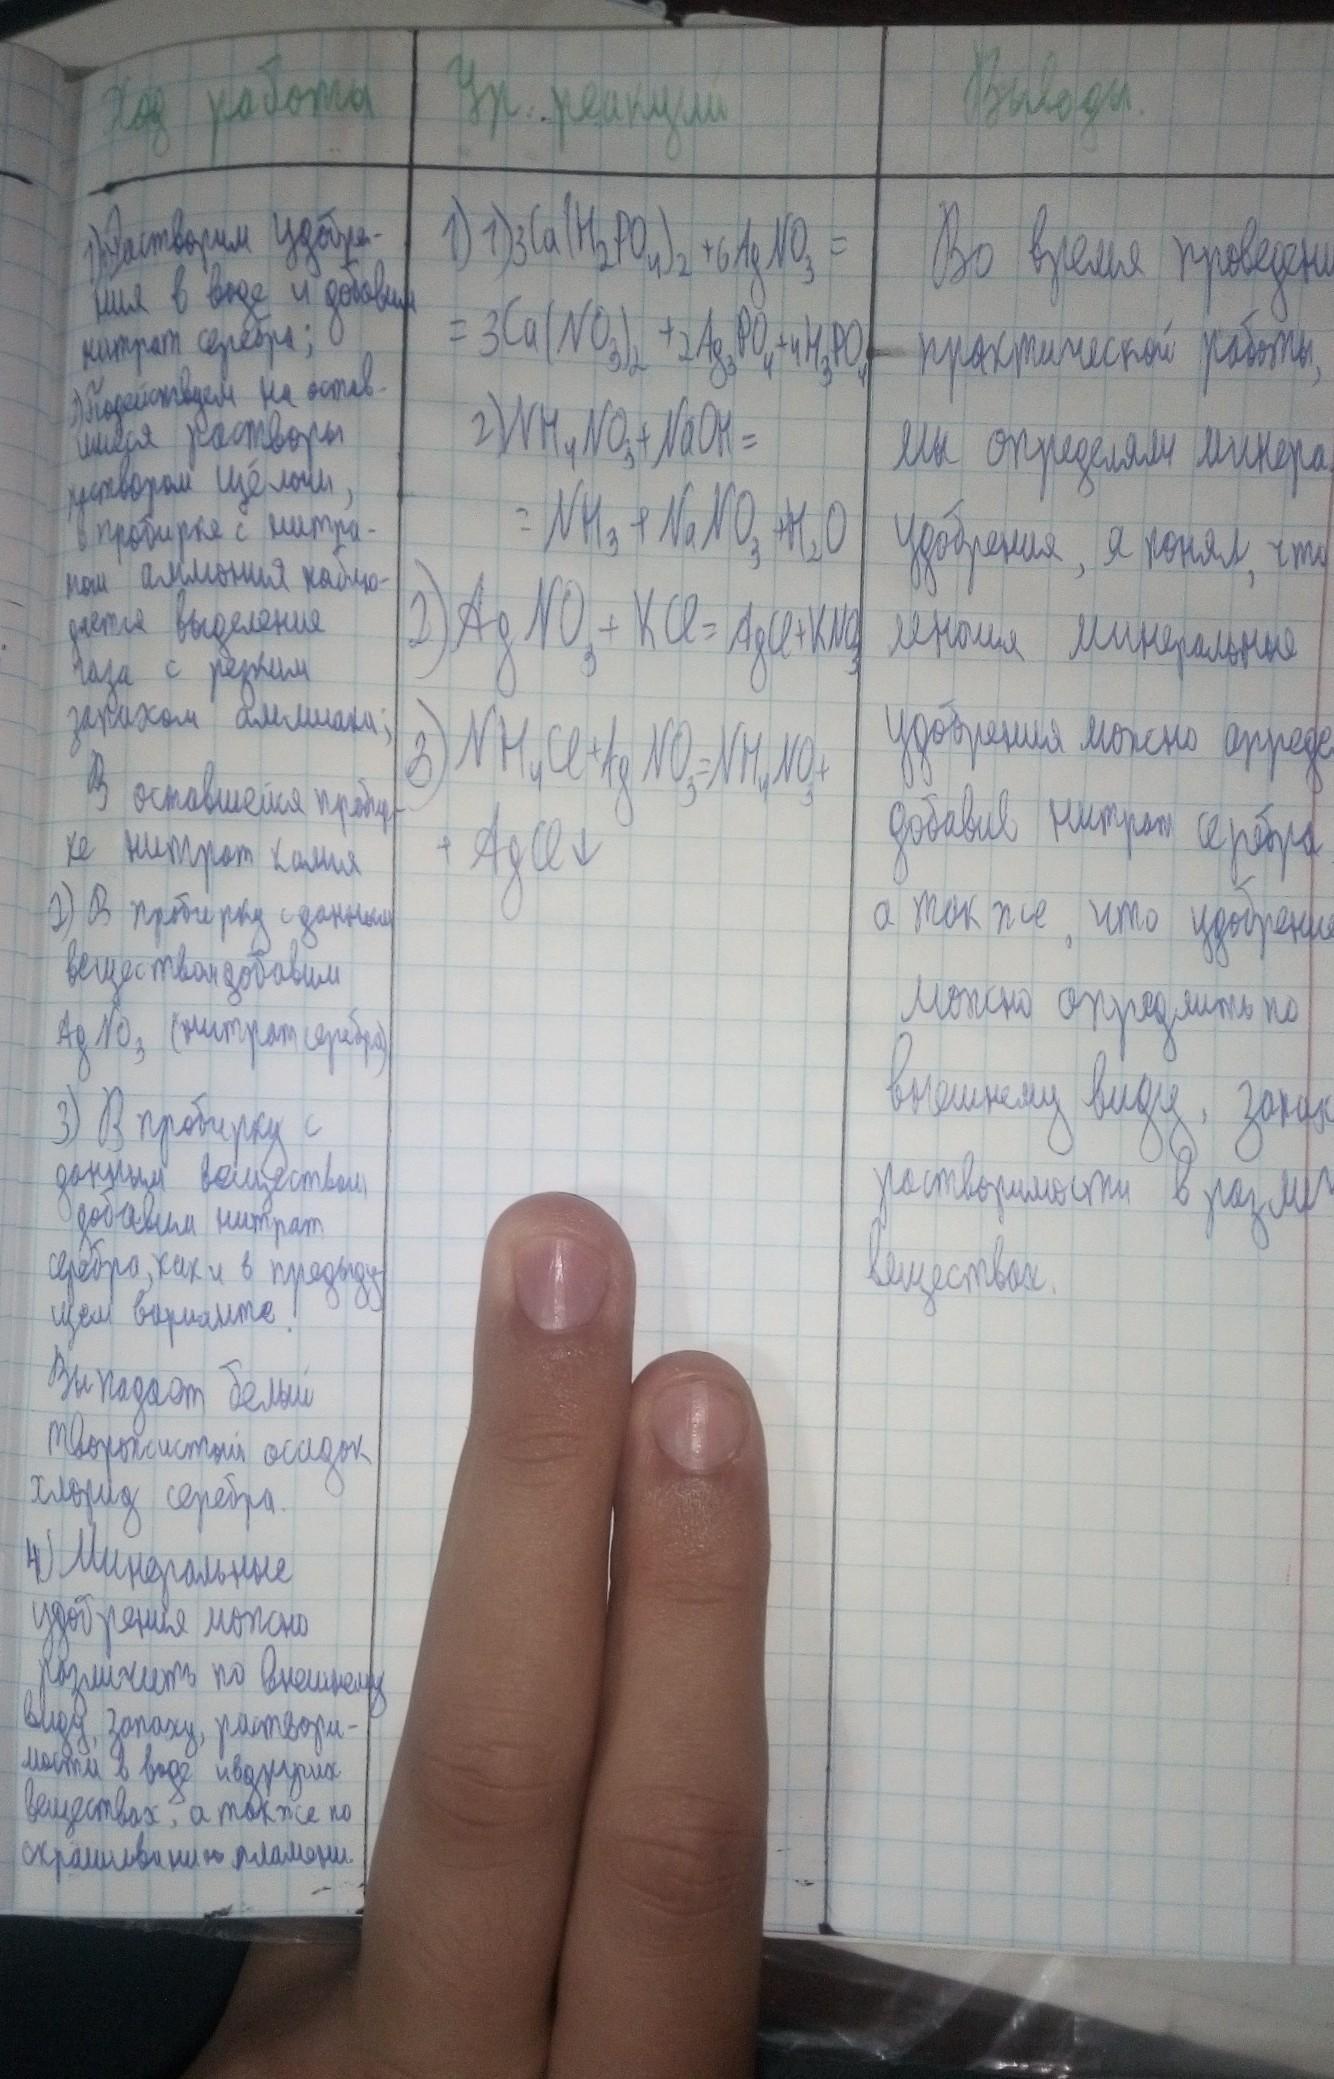 Ход работы
1) Растворим удобре-
ния в воде и добавим
нитрат серебра;
2) Подействуем на остав-
шиеся растворы
раствором щёлочи,
в пробирке с нитра-
том аммония наблю-
дается выделения
газа с резким
запахом аммиака;
В оставшейся пробир-
ке нитрат калия
2) В пробирку с данным
веществом добавим
AgNO3 (нитрат серебра)
3) В пробирку с
данным веществом
добавим нитрат
серебра, как и в предыду
щем варианте.
Выпадает белый
творожистый осадок
хлорид серебра.
4) Минеральные
удобрения можно
различить по внешнему
виду, запаху, раствори-
мости в воде и в других
веществах, а также по
окрашиванию пламени.
Ур. реакций
1) 1) 3Ca(H2PO4)2 + 6AgNO3 =
= 3Ca(NO3)2 + 2Ag3PO4 + 4H3PO4
2) NH4NO3 + NaOH =
= NH3 + NaNO3 + H2O
2) AgNO3 + KCl = AgCl + KNO3
3) NH4Cl + AgNO3 = NH4NO3 +
+ AgCl↓
Выводы.
Во время проведени
практической работы,
мы определяли минера
удобрения, я понял, что
минеральные
удобрения можно опреде
добавив нитрат серебра
а так же, что удобрение
можно определить по
внешнему виду, запах
растворимости в
веществах.